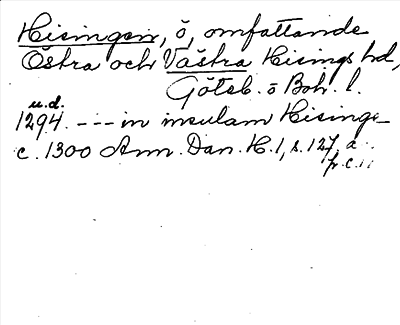 Hisingen, ö, omfattande
Östra och Västra Hisings hd,
Göteb. o Boh. l.
u.d.
1294. --- in insulam Hisinge
c. 1300 Ann. Dan. H. 1, s. 127, a
pr. c.